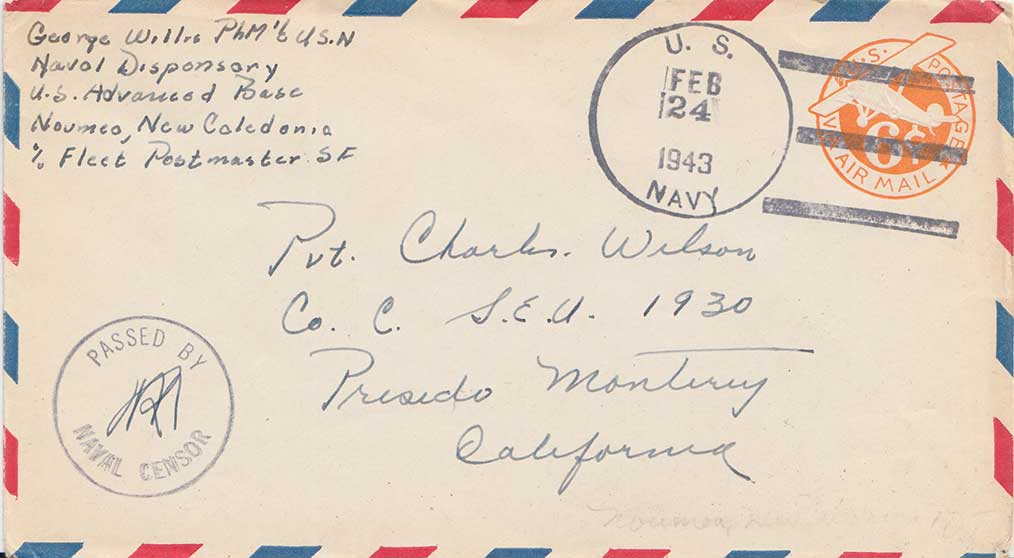 George Willis PhM 1/c U.S.N
Naval Dispensary
U.S. Advanced Base
Noumea, New Caledonia
% Fleet Postmaster SF
U. S.
FEB
24
1943
NAVY
U.S. POSTAGE
6¢
VIA AIR MAIL
Pvt. Charles. Wilson
Co. C. S.E.U. 1930
Presido Monterey
California
PASSED BY
NAVAL CENSOR
Noumea, New